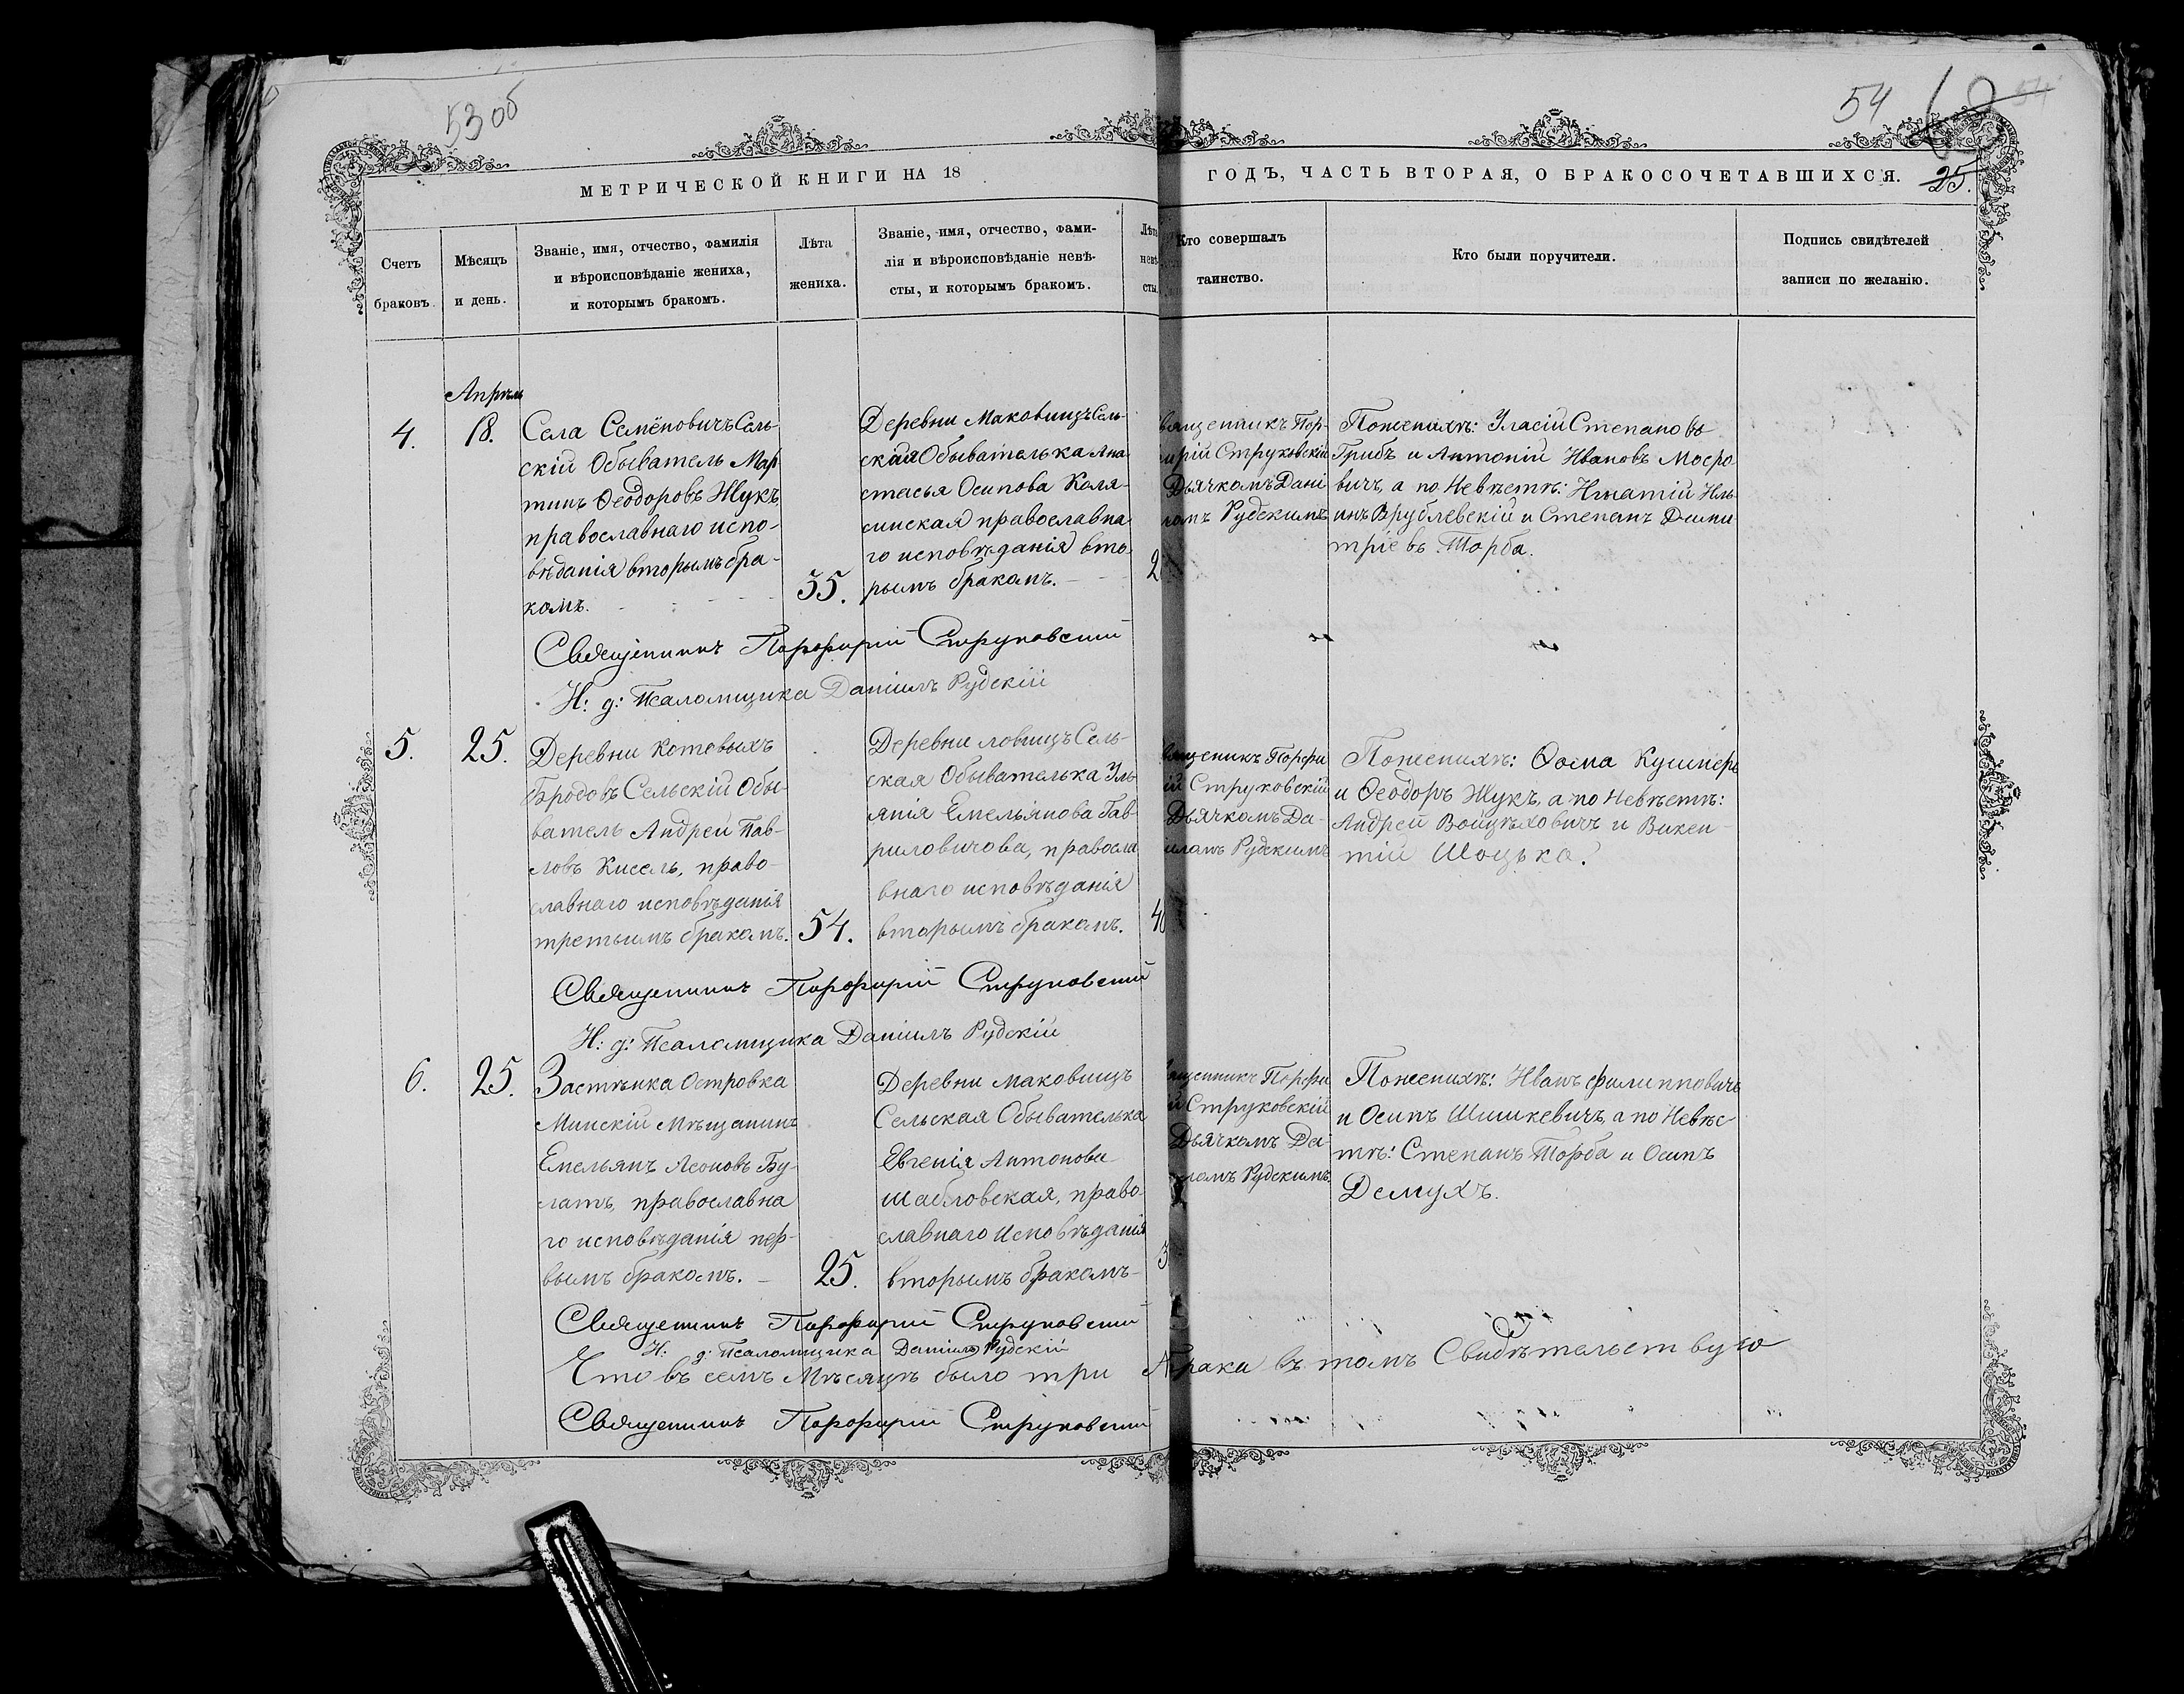 53 об
54
60
54
25.
МЕТРИЧЕСКОЙ КНИГИ НА 18
ГОДЪ, ЧАСТЬ ВТОРАЯ, О БРАКОСОЧЕТАВШИХСЯ.
Счетъ
браковъ.
Мѣсяцъ
и день.
Званіе, имя, отчество, фамилія
и вѣроисповѣданіе жениха,
и которымъ бракомъ.
Лѣта
жениха.
Званіе, имя, отчество, фами-
лія и вѣроисповѣданіе невѣ-
сты, и которымъ бракомъ.
Лѣта
невѣ-
сты.
Кто совершалъ
таинство.
Кто были поручители.
Подпись свидѣтелей
записи по желанію.
4.
Апрѣль
18.
Села Семёновичъ Сель-
скій Обыватель Мар
тинъ Ѳеодоровъ Жукъ,
православнаго испо-
вѣданія вторымъ бра-
комъ.
35.
Деревни Маковищъ Сель-
ская Обывателька Ана
стасья Осипова Коля-
синская православна
го исповѣданія вто-
рымъ бракомъ.
2
вященникъ Пор-
ирій Струковскій
Дьячкомъ Дані
ломъ Рудскимъ
По женихѣ: Уласій Степановъ
Грибъ и Антоній Ивановъ Мосро
вичъ, а по Невѣстѣ: Игнатій Иль
инъ Врублевскій и Степанъ Дими
тріевъ Торба.
Священникъ Порфирій Струковскій
И: д: Псаломщика Даніилъ Рудскій
5.
25.
Деревни Котовыхъ
Бродовъ Сельскій Обы-
ватель Андрей Пав-
ловъ Кисель, право-
славнаго исповѣданія
третьимъ бракомъ.
54.
Деревни ловищъ Сель-
ская Обывателька Уль
янія Емельянова Гав-
риловичова, правосла
внаго исповѣданія
вторымъ бракомъ.
40
вященникъ Порфи
ій Струковскій
Дьячкомъ Да-
иломъ Рудскимъ
По женихѣ: Ѳома Кушнеръ
и Ѳеодоръ Жукъ, а по Невѣстѣ:
Андрей Войцѣховичъ и Викен-
тій Шоцька.
Священникъ Порфирій Струковскій
И: д: Псаломщика Даніилъ Рудскій
6.
25.
Застѣнка Островка
Минскій Мѣщанинъ
Емельянъ Леоновъ Бу-
латъ, православна
го исповѣданія пер-
вымъ бракомъ.
25.
Деревни Маковищъ
Сельская Обывателька
Евгенія Антонова
Шабловская, право-
славнаго Исповѣданія
вторымъ бракомъ
3
вященникъ Порфи
й Струковскій
Дьячкомъ Да-
иломъ Рудскимъ.
По женихѣ: Иванъ Филипповичъ
и Осипъ Шишкевичъ, а по Невѣс
тѣ: Степанъ Торба и Осипъ
Демухъ.
Священникъ Порфирій Струковскій
И: д: Псаломщика Даніилъ Рудскій
Что въ семъ Мѣсяцѣ было три брака въ томъ Свидѣтельствую
Священникъ Порфирій Струковскій